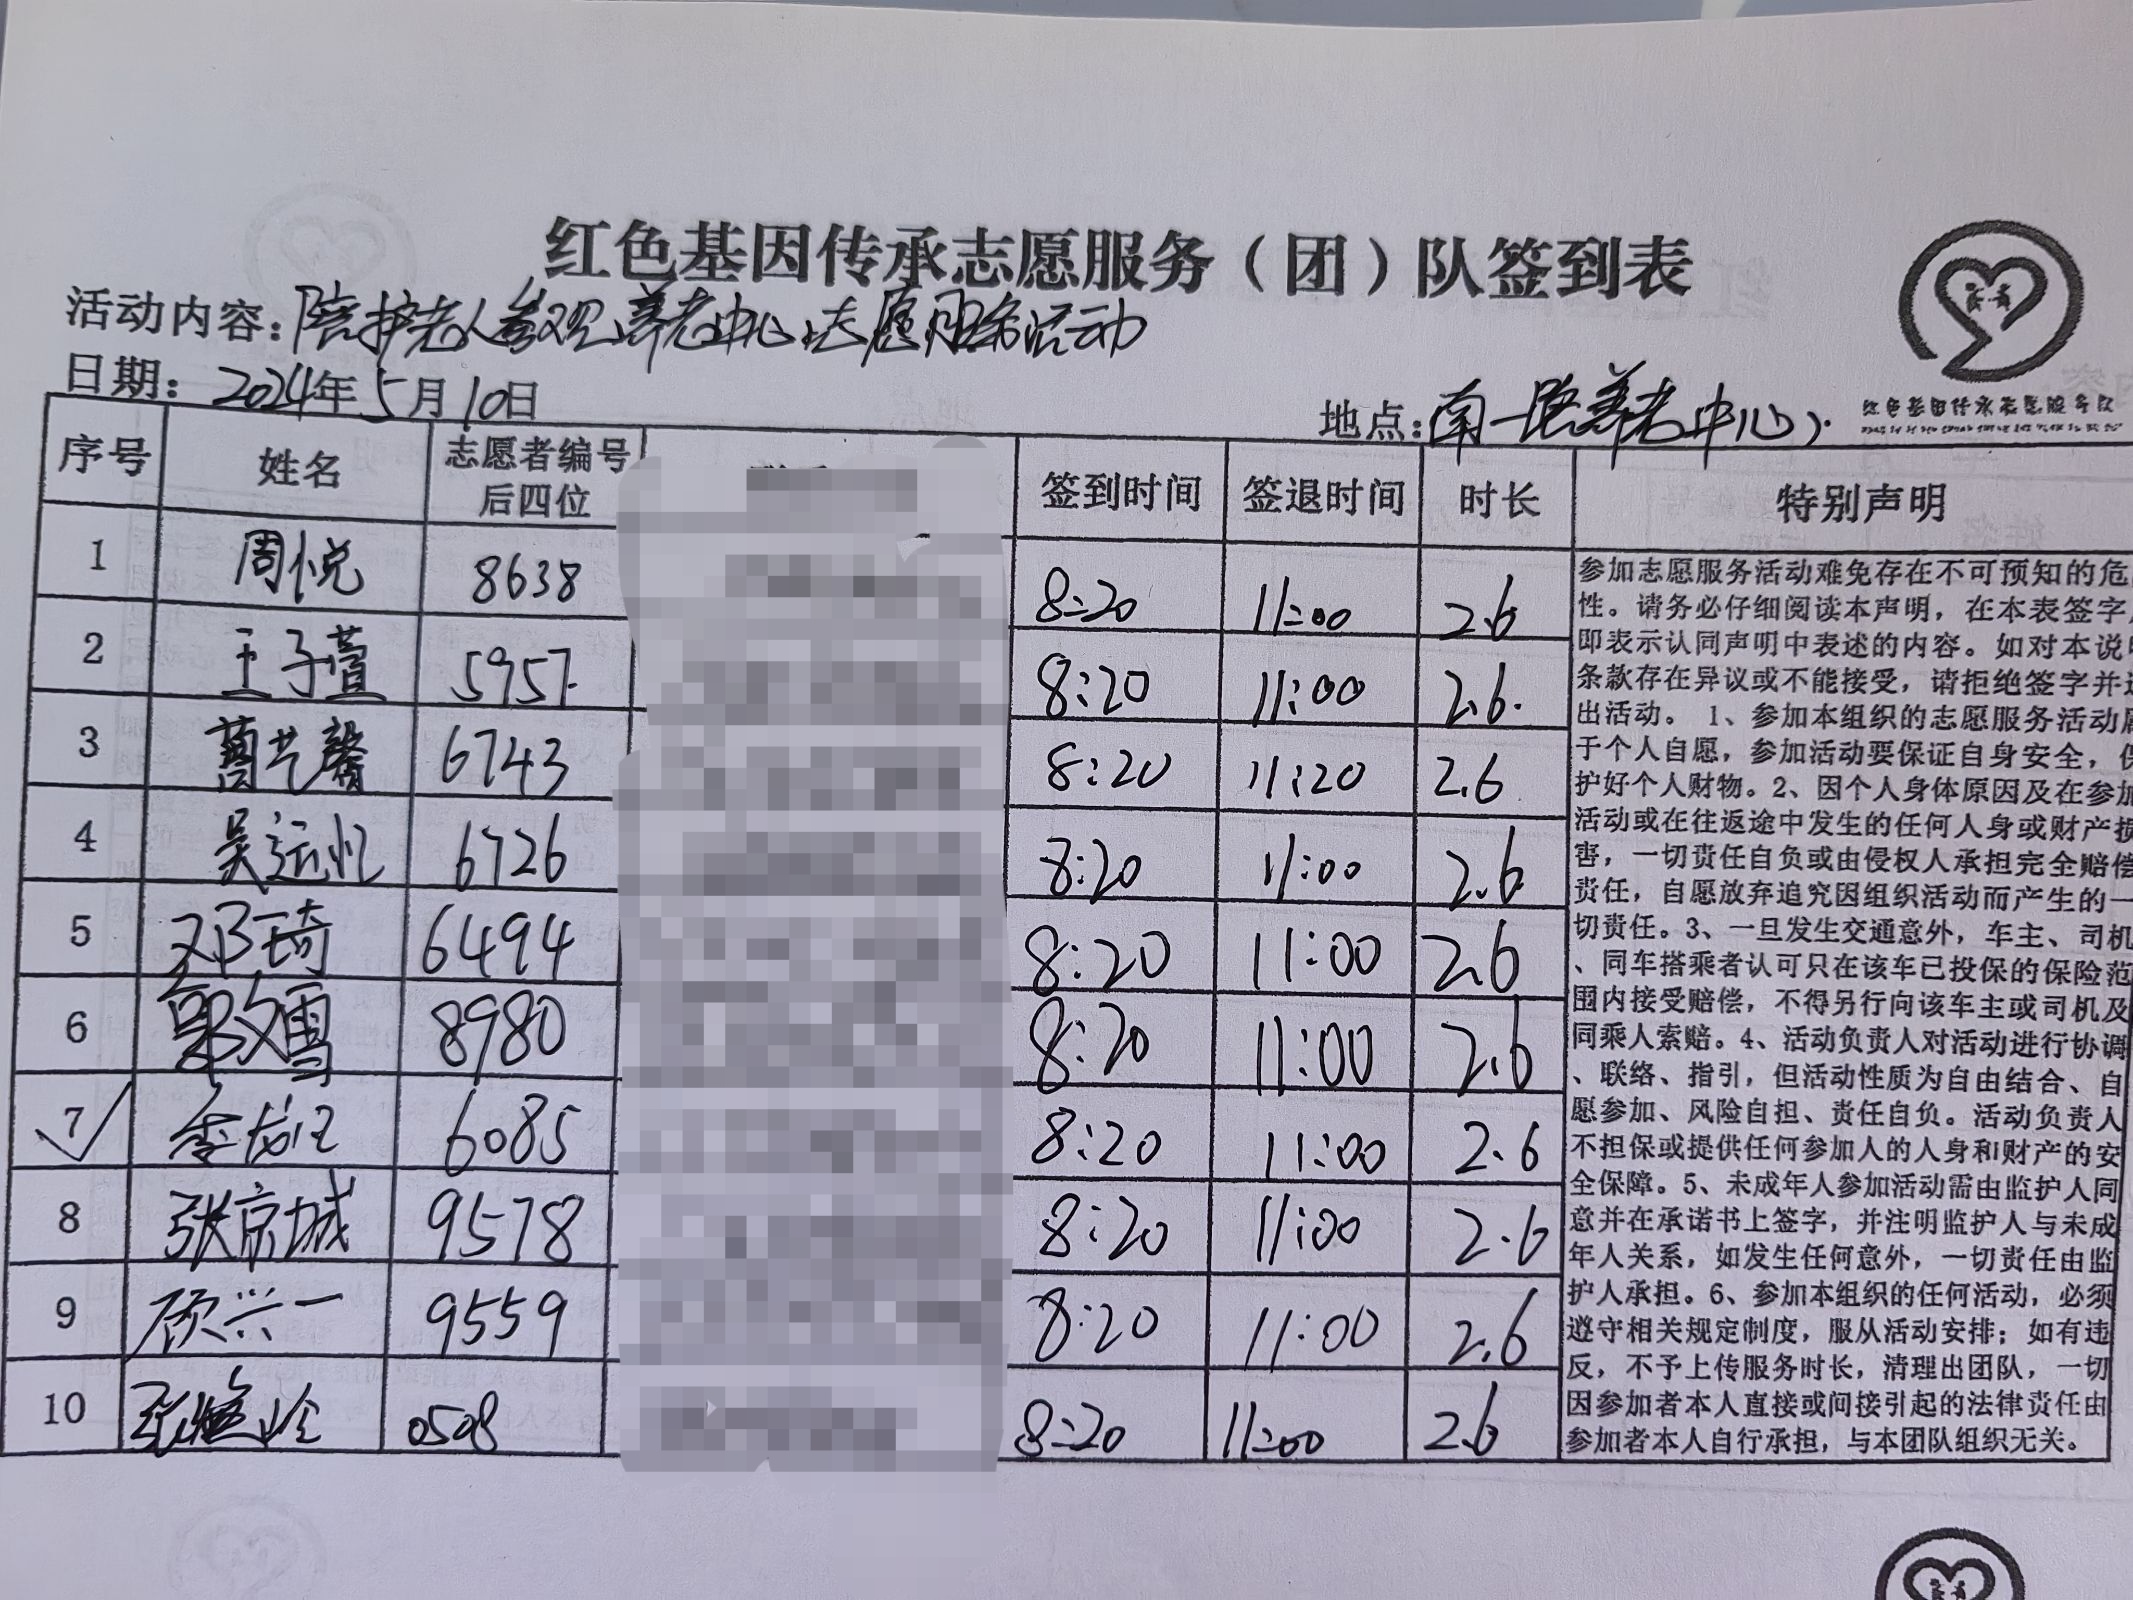 红色基因传承志愿服务（团）队签到表
活动内容：陪护老人参观养老中心志愿服务活动
日期：2024年5月10日
地点：南一路养老中心
红色基因传承志愿服务队
序号 姓名 志愿者编号后四位 签到时间 签退时间 时长 特别声明
1 周悦 8638 8:20 11:00 2.6
2 王子萱 5957 8:20 11:00 2.6
3 蔺艺馨 6743 8:20 11:20 2.6
4 吴运忆 6726 8:20 11:00 2.6
5 邓琦 6494 8:20 11:00 2.6
6 郭文雪 8980 8:20 11:00 2.6
7 6085 8:20 11:00 2.6
8 张京城 9578 8:20 11:00 2.6
9 顾兴一 9559 8:20 11:00 2.6
10 0508 8:20 11:00 2.6
参加志愿服务活动难免存在不可预知的危
性。请务必仔细阅读本声明，在本表签字
即表示认同声明中表述的内容。如对本说
条款存在异议或不能接受，请拒绝签字并
出活动。1、参加本组织的志愿服务活动属
于个人自愿，参加活动要保证自身安全，保
护好个人财物。2、因个人身体原因及在参加
活动或在往返途中发生的任何人身或财产损
害，一切责任自负或由侵权人承担完全赔偿
责任，自愿放弃追究因组织活动而产生的一
切责任。3、一旦发生交通意外，车主、司机
、同车搭乘者认可只在该车已投保的保险范
围内接受赔偿，不得另行向该车主或司机及
同乘人索赔。4、活动负责人对活动进行协调
、联络、指引，但活动性质为自由结合、自
愿参加、风险自担、责任自负。活动负责人
不担保或提供任何参加人的人身和财产的安
全保障。5、未成年人参加活动需由监护人同
意并在承诺书上签字，并注明监护人与未成
年人关系，如发生任何意外，一切责任由监
护人承担。6、参加本组织的任何活动，必须
遵守相关规定制度，服从活动安排；如有违
反，不予上传服务时长，清理出团队，一切
因参加者本人直接或间接引起的法律责任由
参加者本人自行承担，与本团队组织无关。